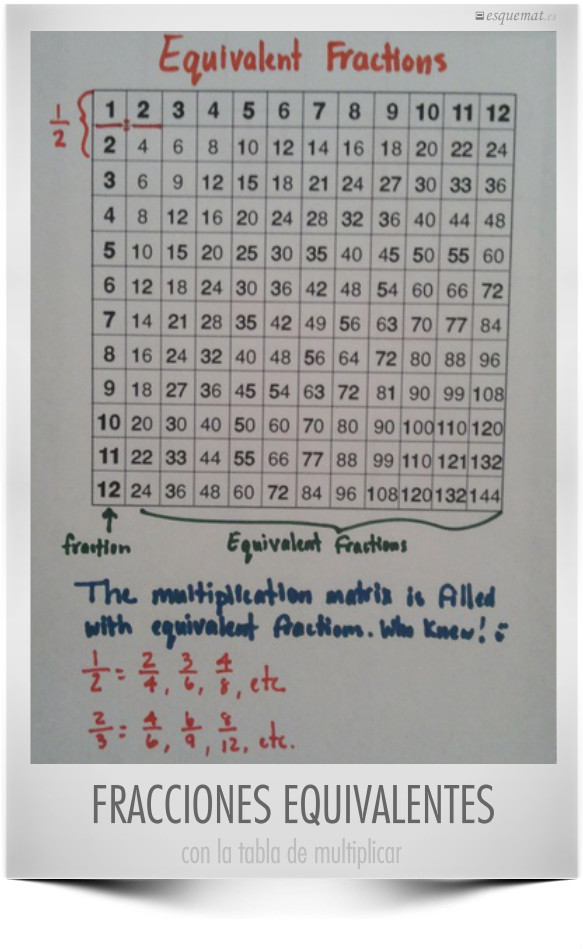 esquemat.es
Equivalent Fractions
1/2
1 2 3 4 5 6 7 8 9 10 11 12
2 4 6 8 10 12 14 16 18 20 22 24
3 6 9 12 15 18 21 24 27 30 33 36
4 8 12 16 20 24 28 32 36 40 44 48
5 10 15 20 25 30 35 40 45 50 55 60
6 12 18 24 30 36 42 48 54 60 66 72
7 14 21 28 35 42 49 56 63 70 77 84
8 16 24 32 40 48 56 64 72 80 88 96
9 18 27 36 45 54 63 72 81 90 99 108
10 20 30 40 50 60 70 80 90 100 110 120
11 22 33 44 55 66 77 88 99 110 121 132
12 24 36 48 60 72 84 96 108 120 132 144
fraction Equivalent Fractions
The multiplication matrix is filled
with equivalent fractions. Who knew!
1/2 = 2/4, 3/6, 4/8, etc
2/3 = 4/6, 6/9, 8/12, etc.
FRACCIONES EQUIVALENTES
con la tabla de multiplicar